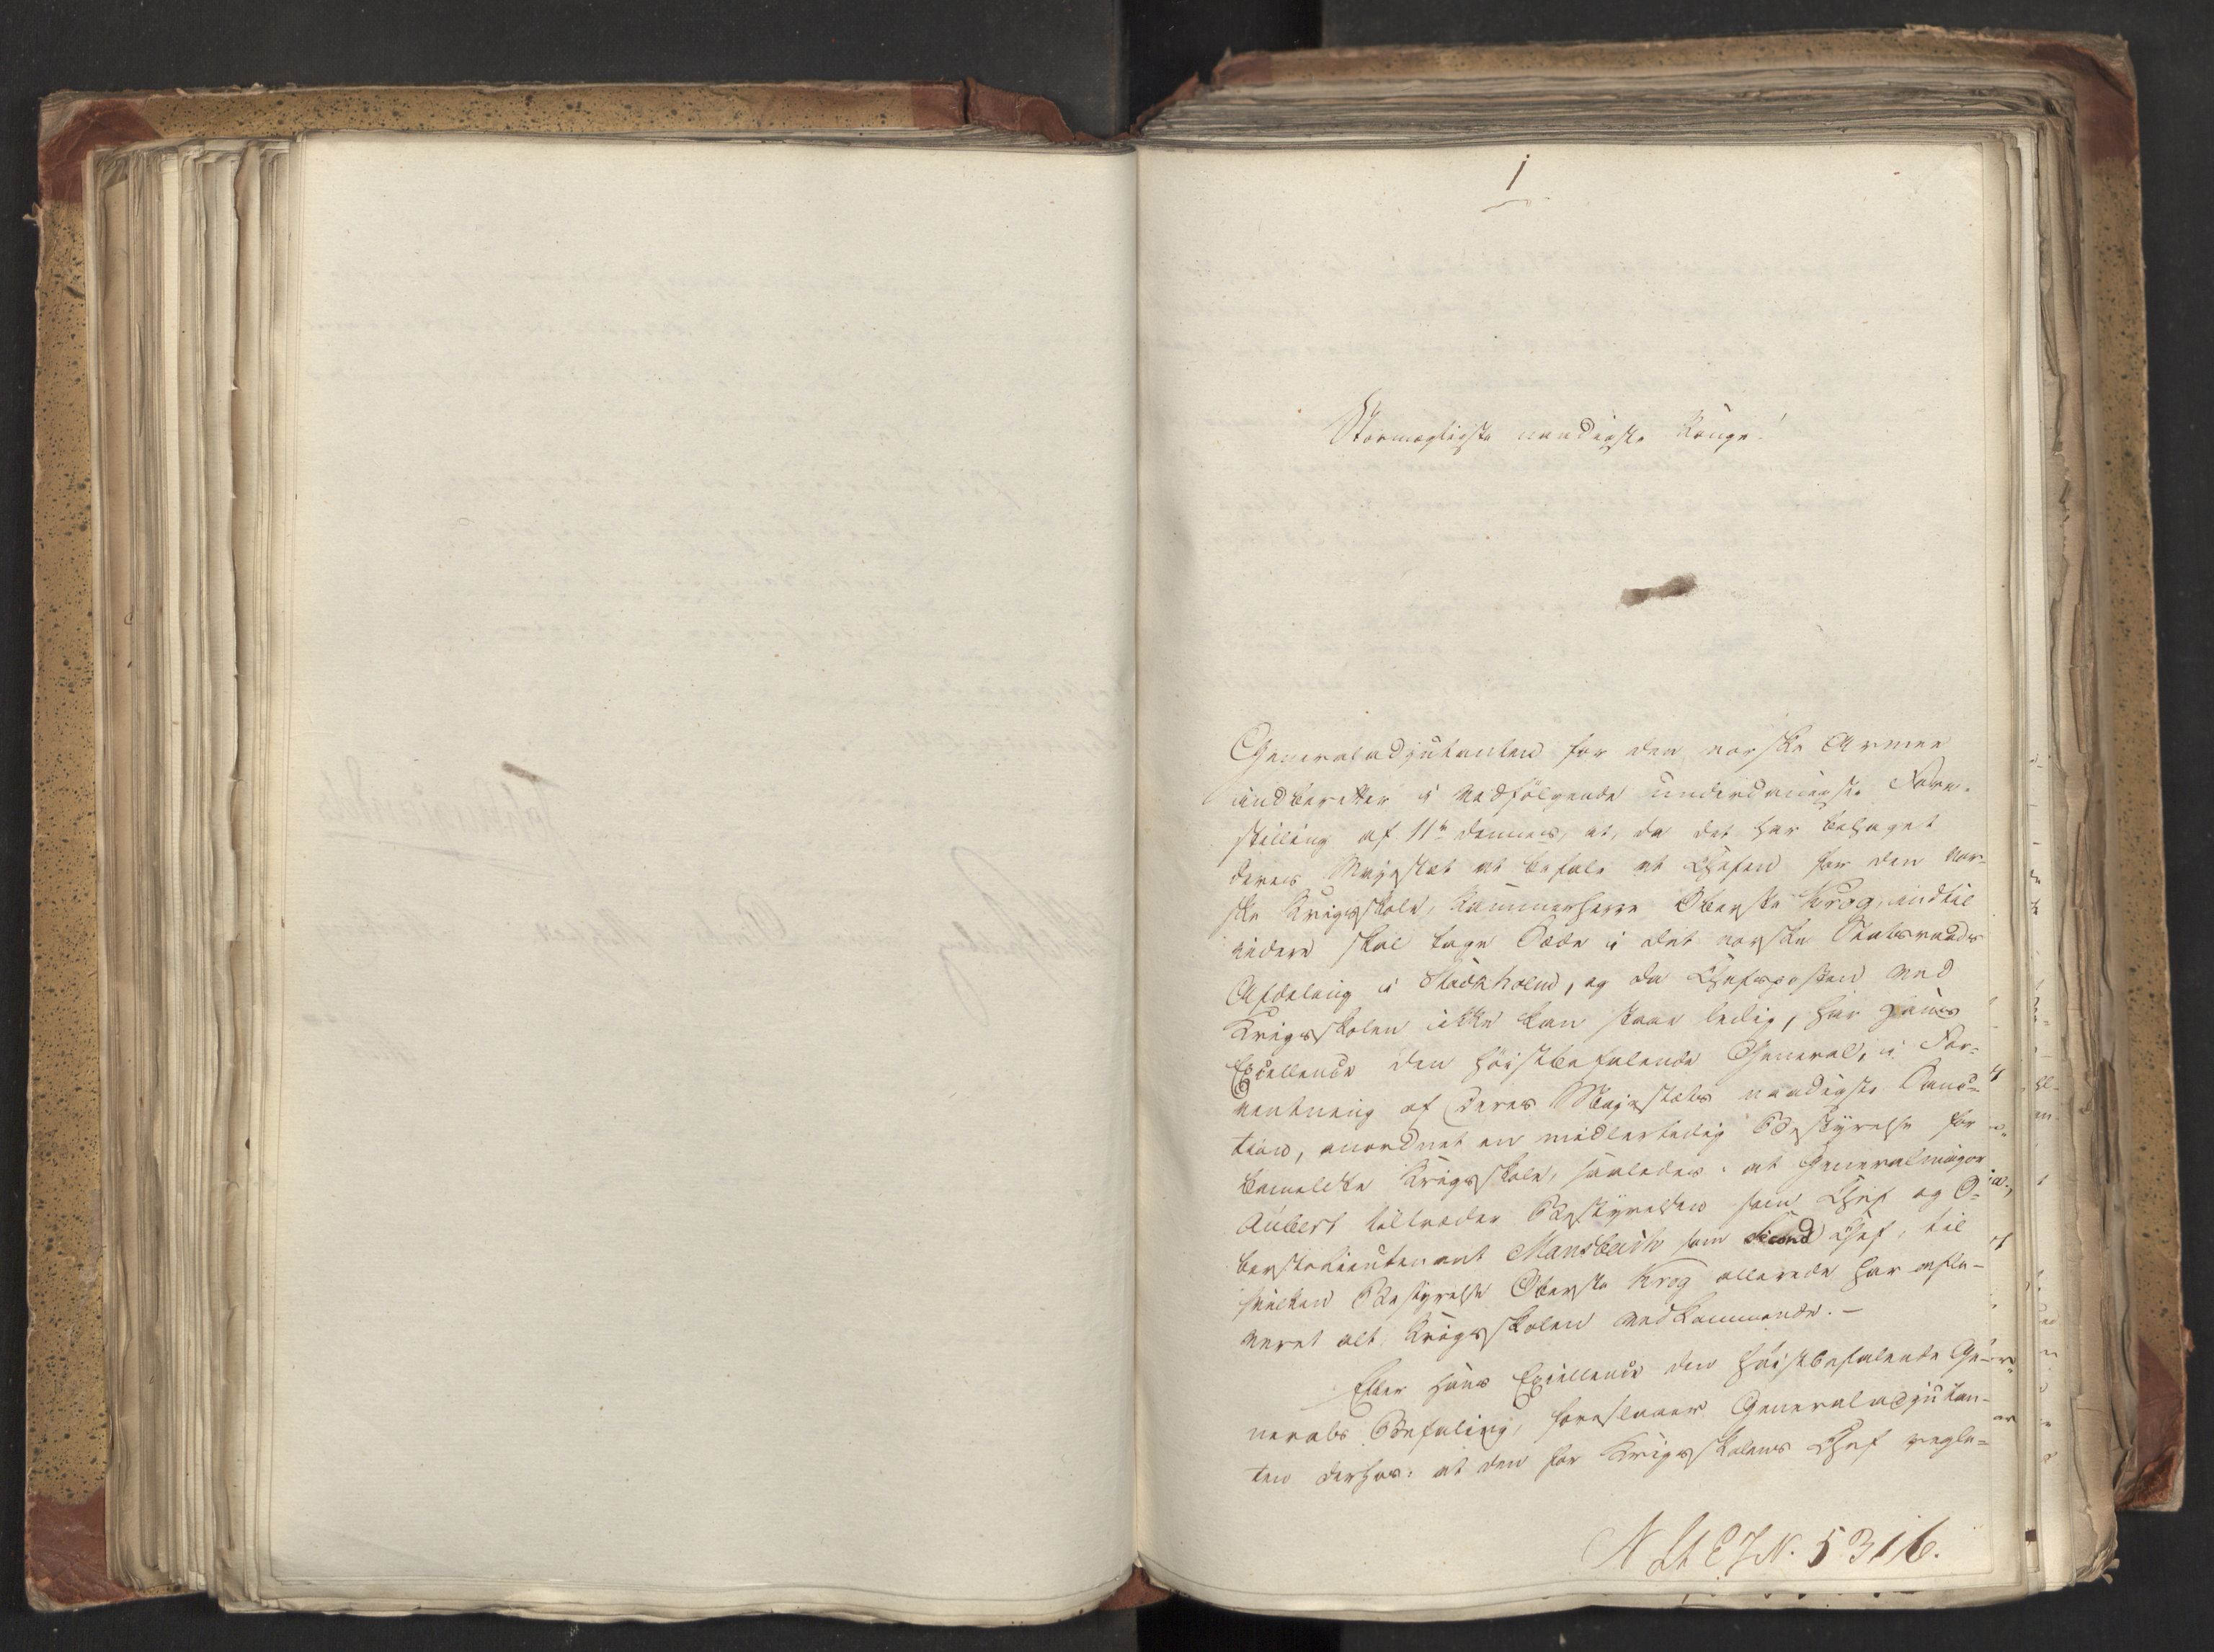 1
Stormægtigste naadigste Konge!
Generaladjutanten for den norske Armee
indberetter i vedfølgende underdanigste Fore-
stilling af 11te dennes, at, da det har behaget
Deres Majestæt at befale at Chefen for den nor-
ske Krigsskole, Kammerherre Oberste Krog, indtil
videre skal tage Sæde i det norske Statsraads
Afdeling i Stockholm, og da Chefsposten ved
Krigsskolen ikke kan staae ledig, har Hans
Excellence den høistbefalende General, i For-
ventning af Deres Majestæts naadigste Sanc-
tion, anordnet en midlertidig Bestyrelse for
bemeldte Krigsskole, saaledes: at Generalmajor
Aubert tiltræder Bestyrelsen som Chef og O-
berstlieutenant Mansbach som Second Chef, til
hvilken Bestyrelse Oberste Krog allerede har afle-
veret alt Krigsskolen vedkommende. –
Efter Hans Excellence den høistbefalende Ge-
nerals Befaling, foreslaaer Generaladjutan-
ten derhos: at den for Krigsskolens Chef regle-
N St C J N. 5316.